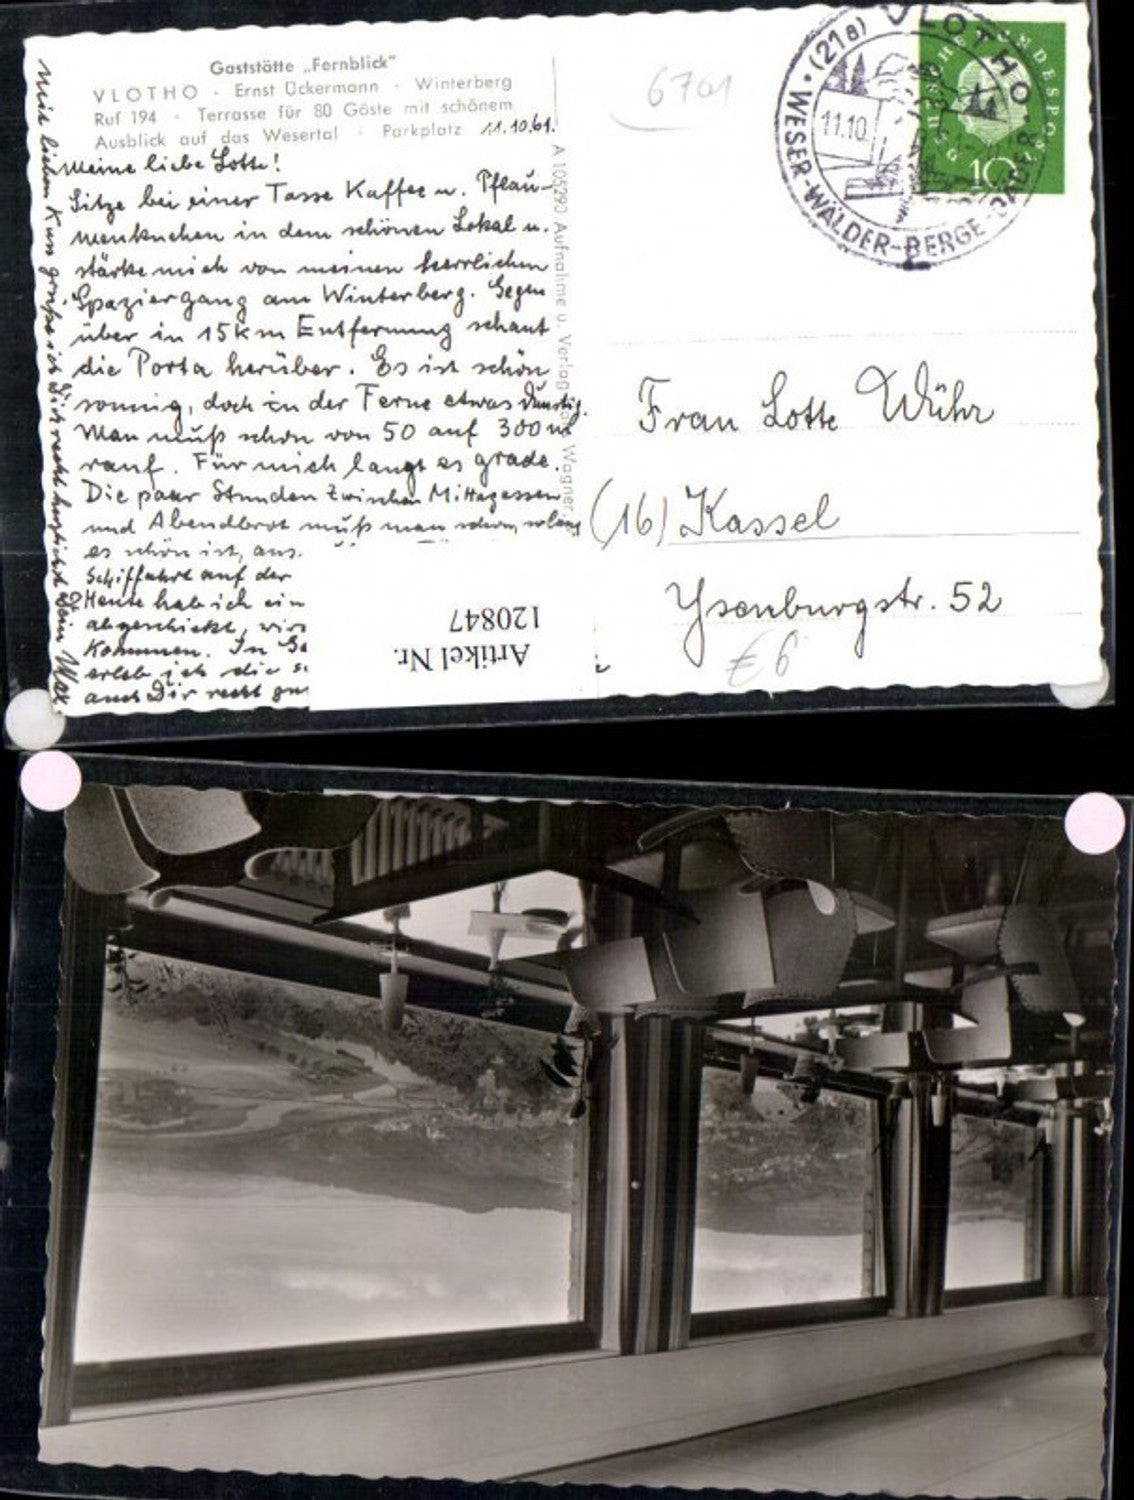 Gaststätte „Fernblick"
VLOTHO · Ernst Ückermann · Winterberg
Ruf 194 · Terrasse für 80 Gäste mit schönem
Ausblick auf das Wesertal · Parkplatz 11.10.61.
Meine liebe Lotte!
Sitze bei einer Tasse Kaffee u. Pflau-
menkuchen in dem schönen Lokal u.
stärke mich von meinem herrlichen
Spaziergang am Winterberg. Gegen
über in 15 km Entfernung schaut
die Porta herüber. Es ist schön
sonnig, doch in der Ferne etwas dunstig.
Man muß schon von 50 auf 300 m
rauf. Für mich langt es grade.
Die paar Stunden zwischen Mittagessen
und Abendbrot muß man schon, solang
es schön ist, aus.
Schiffahrt auf der
Heute hab ich ein
abgeschickt, wird
kommen. In Ge
erleb ich die s
auch Dir recht gu
Mein lieben Kuss grüße ich Dich recht herzlichst Dein Max.
A 105290 Aufnahme u. Verlag Wagner,
6761
(21a) VLOTHO
11.10.
WESER-WÄLDER-BERGE
DEUTSCHE BUNDESPOST
10
Frau Lotte Wühr
(16) Kassel
Ysenburgstr. 52
€ 6
Artikel Nr.
120847